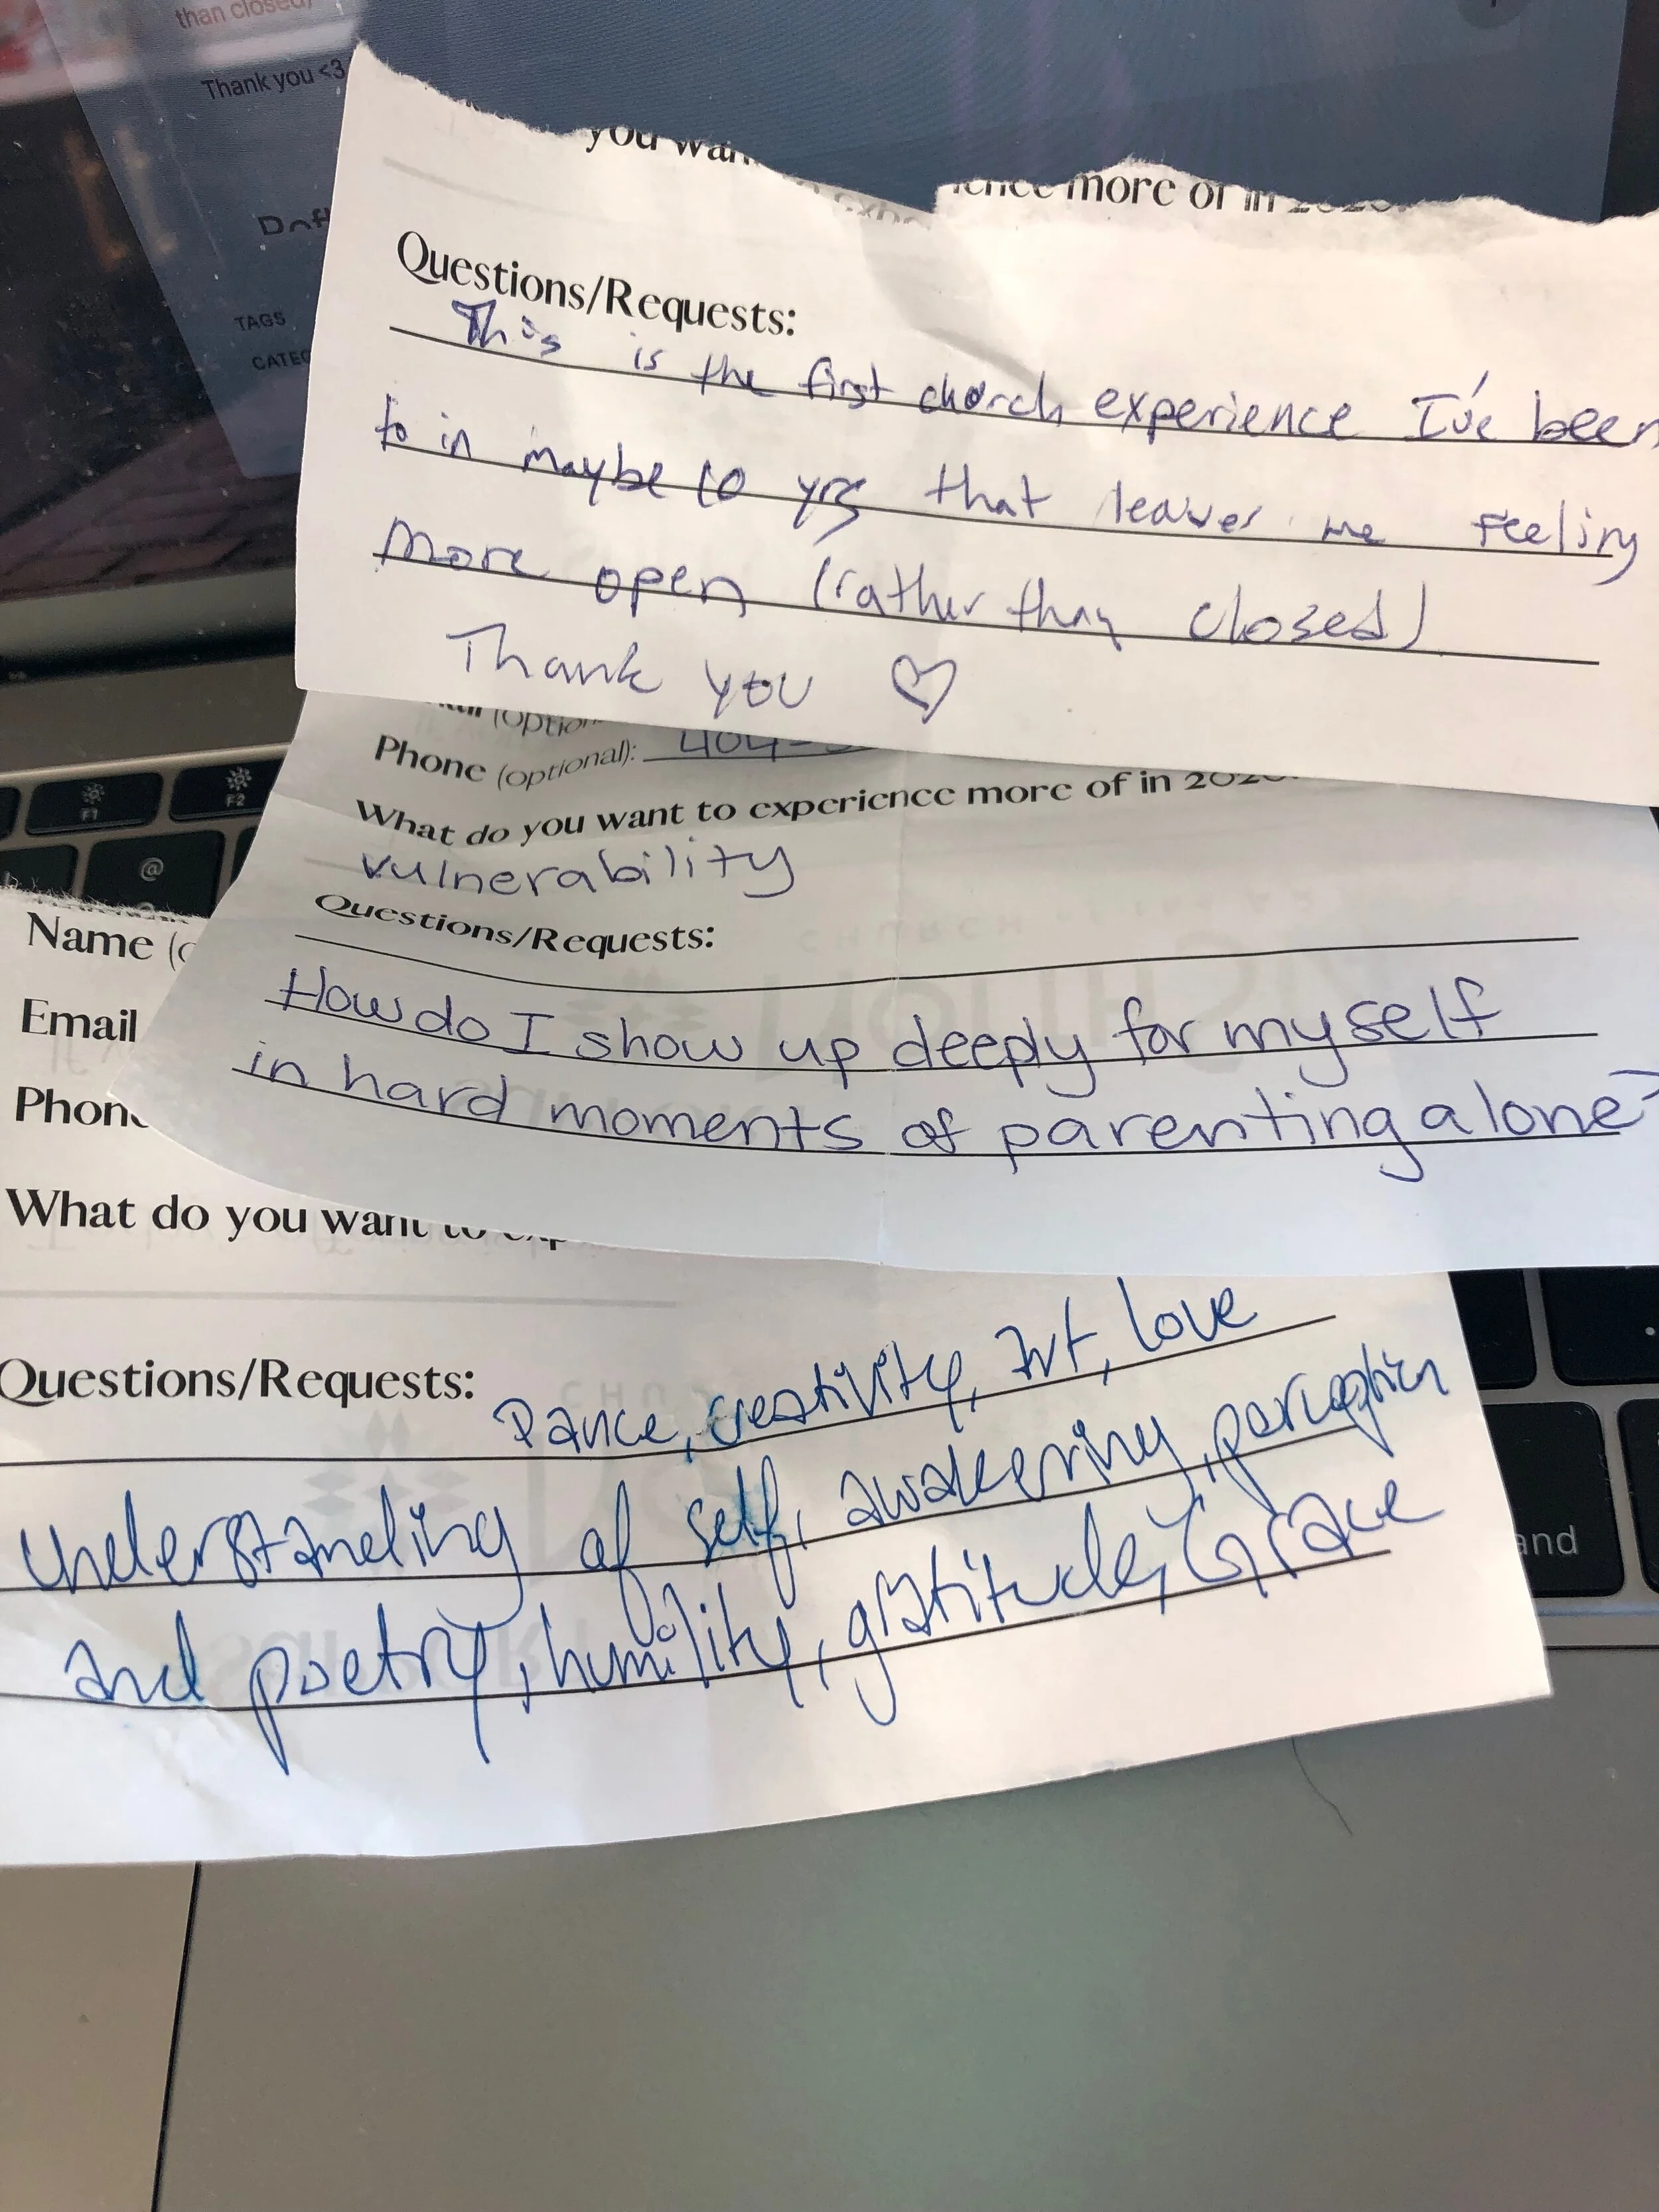 than closed)
Thank you <3
TAGS
you wan
more of in
Questions/Requests:
This is the first church experience I've been
to in maybe 10 yrs that leaves me feeling
more open (rather than closed)
Thank you ♡
Phone (optional): 404-
What do you want to experience more of in
vulnerability
Questions/Requests:
How do I show up deeply for myself
in hard moments of parenting alone?
Name
Email
Phon
What do you want to exp
Questions/Requests:
Dance, creativity, Art, love
understanding of self, awakening, perception
and poetry, humility, gratitude, Grace
F1
F2
@
and